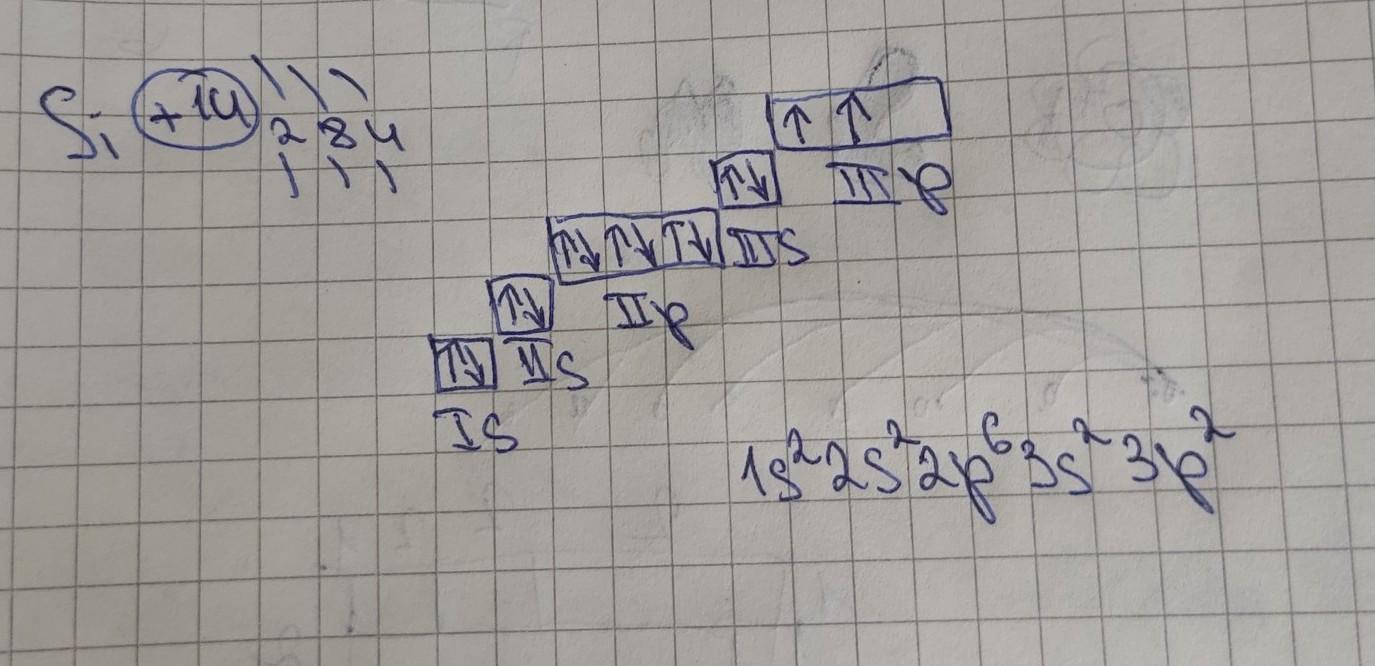 Si +14 2 8 4
↑ ↑
↑↓ III p
↑↓ ↑↓ ↑↓ III S
↑↓ II p
↑↓ II S
I S
1s²2s²2p⁶3s²3p²